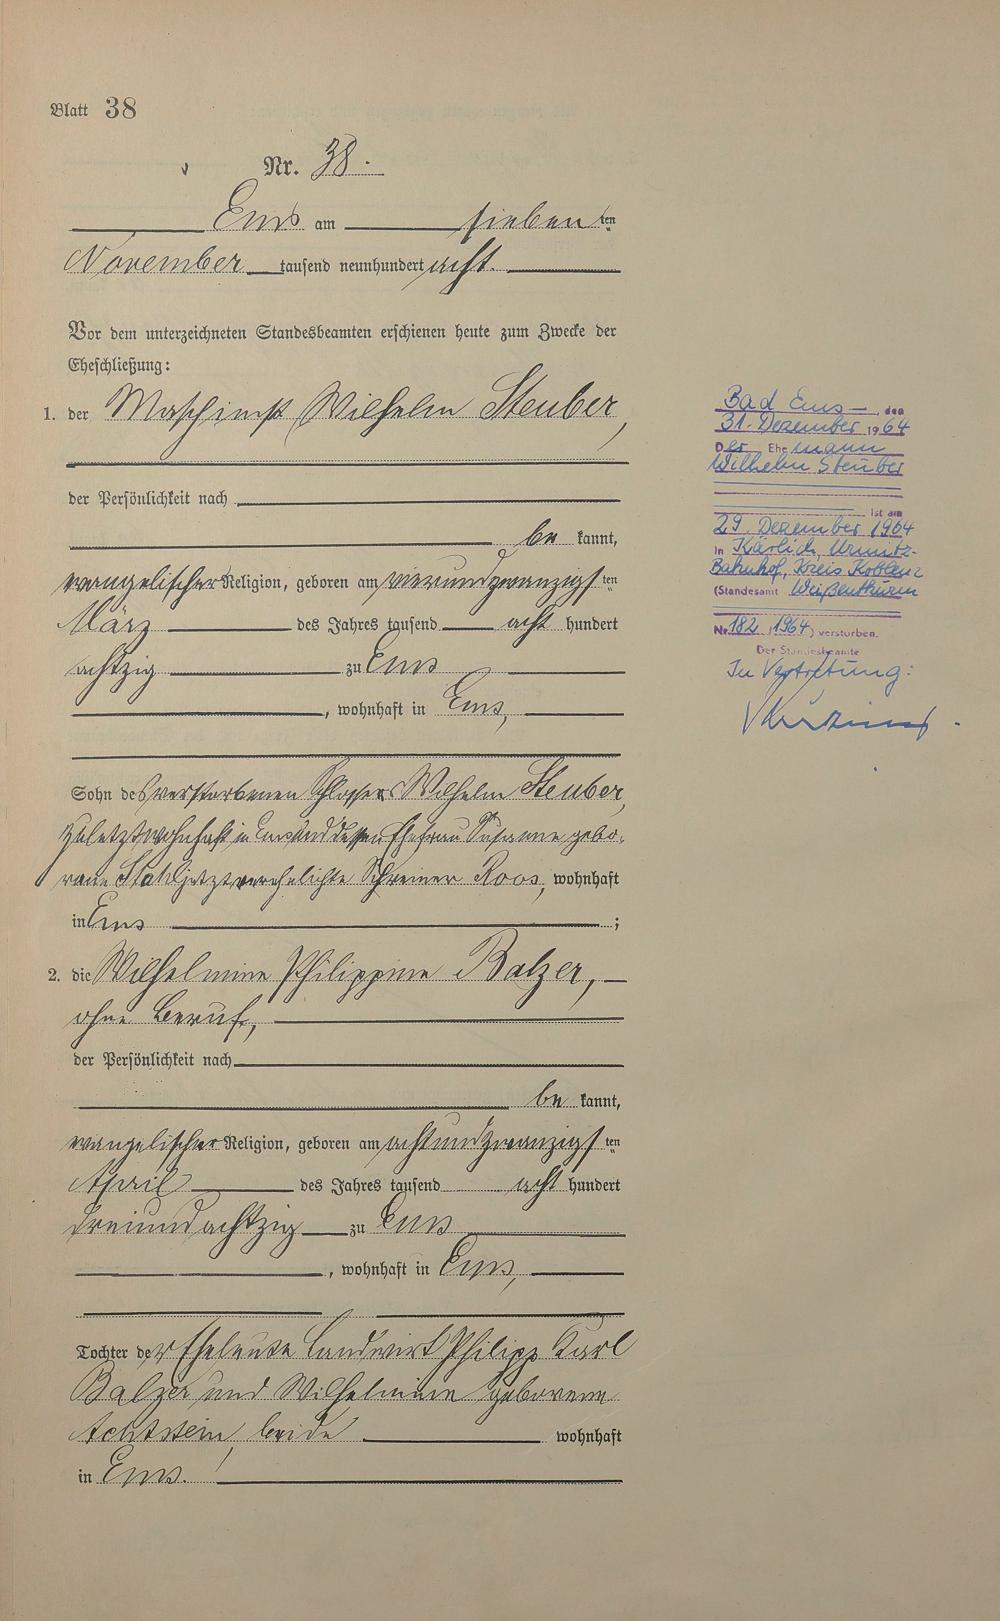 Blatt 38
Nr. 38.
Ems am sieben ten
November tausend neunhundert acht.
Vor dem unterzeichneten Standesbeamten erschienen heute zum Zwecke der
Eheschließung:
1. der Maschinist Wilhelm Steuber,
der Persönlichkeit nach
be kannt,
evangelischer Religion, geboren am vierundzwanzigs ten
März des Jahres tausend acht hundert
achtzig zu Ems
, wohnhaft in Ems,
Sohn des verstorbenen Schlossers Wilhelm Steuber,
zuletzt wohnhaft in Ems und dessen Ehefrau Susanne gebo-
rene Stahl jetzt verehelichte Schreiner Roos, wohnhaft
in Ems ;
2. die Wilhelmine Philippine Balzer,
ohne Beruf,
der Persönlichkeit nach
be kannt,
evangelischer Religion, geboren am achtundzwanzigs ten
April des Jahres tausend acht hundert
dreiundachtzig zu Ems
, wohnhaft in Ems,
Tochter der Eheleute Landwirt Philipp Karl
Balzer und Wilhelmine geborene
Achtstein, beide wohnhaft
in Ems.
Bad Ems, den
31. Dezember 1964
Der Ehemann
Wilhelm Steuber
ist am
29. Dezember 1964
in Kärlich, Urmitz-
Bahnhof, Kreis Koblenz
(Standesamt Weißenthurm
Nr. 182/1964) verstorben.
Der Standesbeamte
In Vertretung: